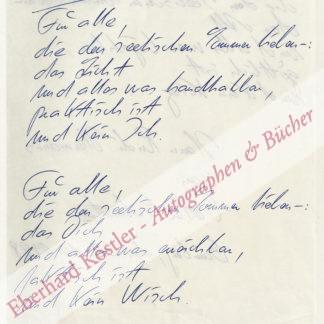 Für alle,
die den poetischen Sommer lieben —:
das Licht
und alles was handhabbar,
praktisch ist
und kein Ich.
Für alle,
die den poetischen Sommer lieben —:
das Dich
und alles was
praktisch ist
und kein Wisch.
Eberhard Köstler - Autographen & Bücher